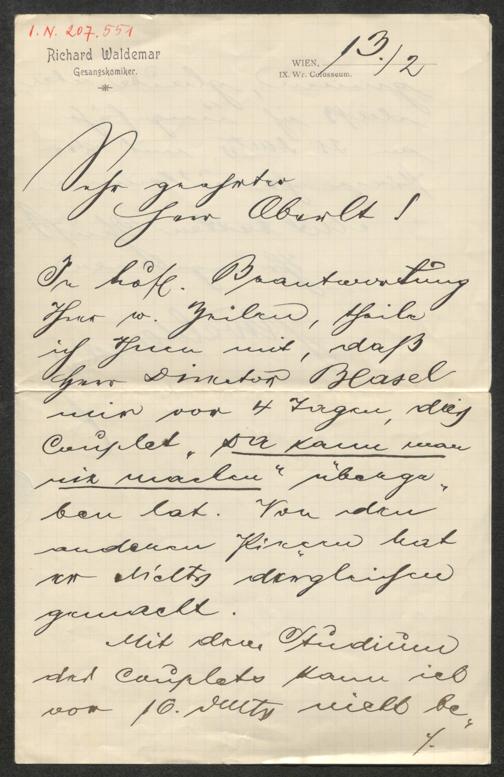 I.N. 207.551
Richard Waldemar
Gesangskomiker.
WIEN, 13./2
IX. Wr. Colosseum.
Sehr geehrter
Herr Oberlt!
In höfl. Beantwortung
Ihrer w. Zeilen, theile
ich Ihnen mit, daß
Herr Direktor Blasel
mir vor 4 Tagen, das
Couplet „Da kann man
nix machen" überge„
ben hat. Von den
anderen Piecen hat
er Nichts dergleichen
gemacht.
Mit dem Studium
des Couplets kann ich
vor 10. nicht be„
./.